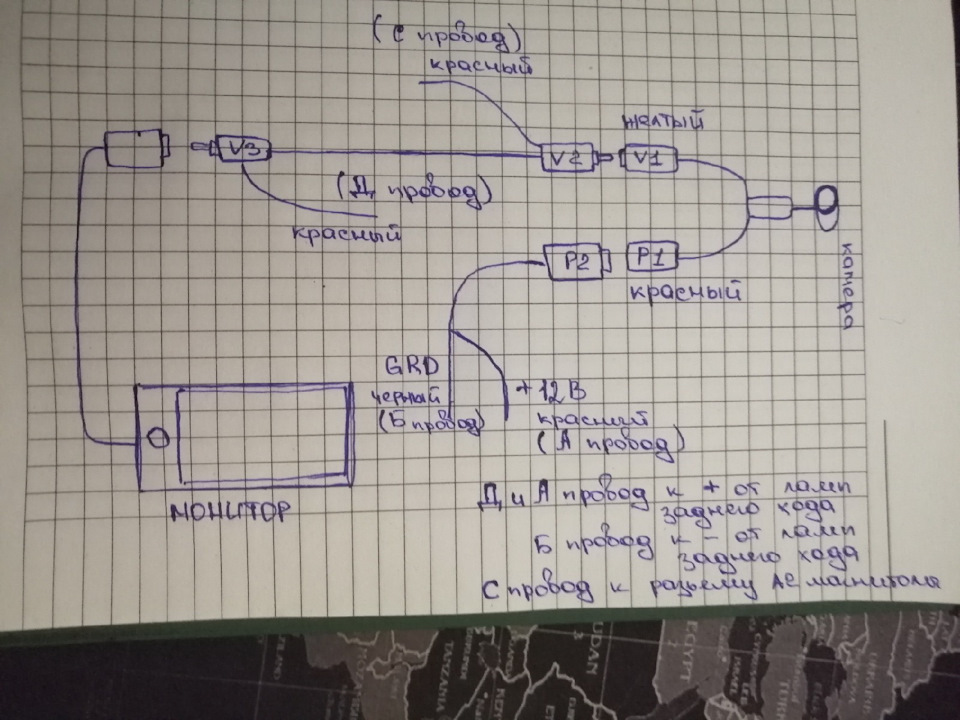 (С провод)
красный
желтый
V3
V2
V1
(Д провод)
красный
P2
P1
красный
камера
GRD
черный
(Б провод)
+12В
красный
(А провод)
МОНИТОР
Д и А провод к + от ламп
заднего хода
Б провод к - от ламп
заднего хода
С провод к разъему
магнитола